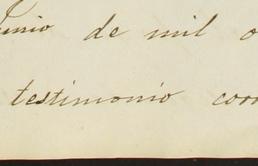 Junio de mil o
testimonio corr